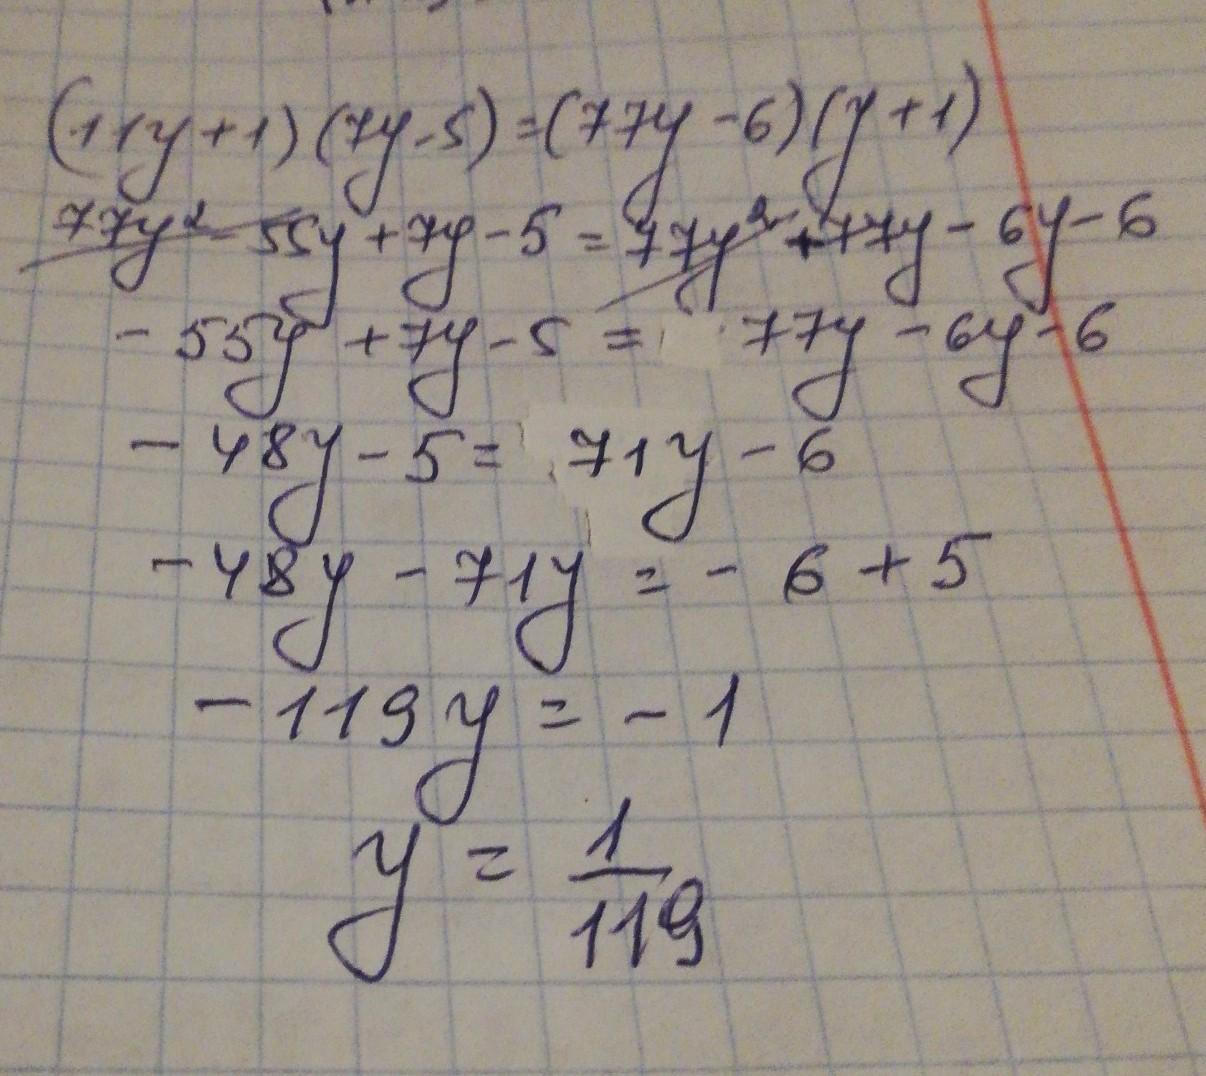 (11y+1)(7y-5)=(77y-6)(y+1)
77y²-55y+7y-5=77y²+77y-6y-6
-55y+7y-5=77y-6y-6
-48y-5=71y-6
-48y-71y=-6+5
-119y=-1
y=1/119